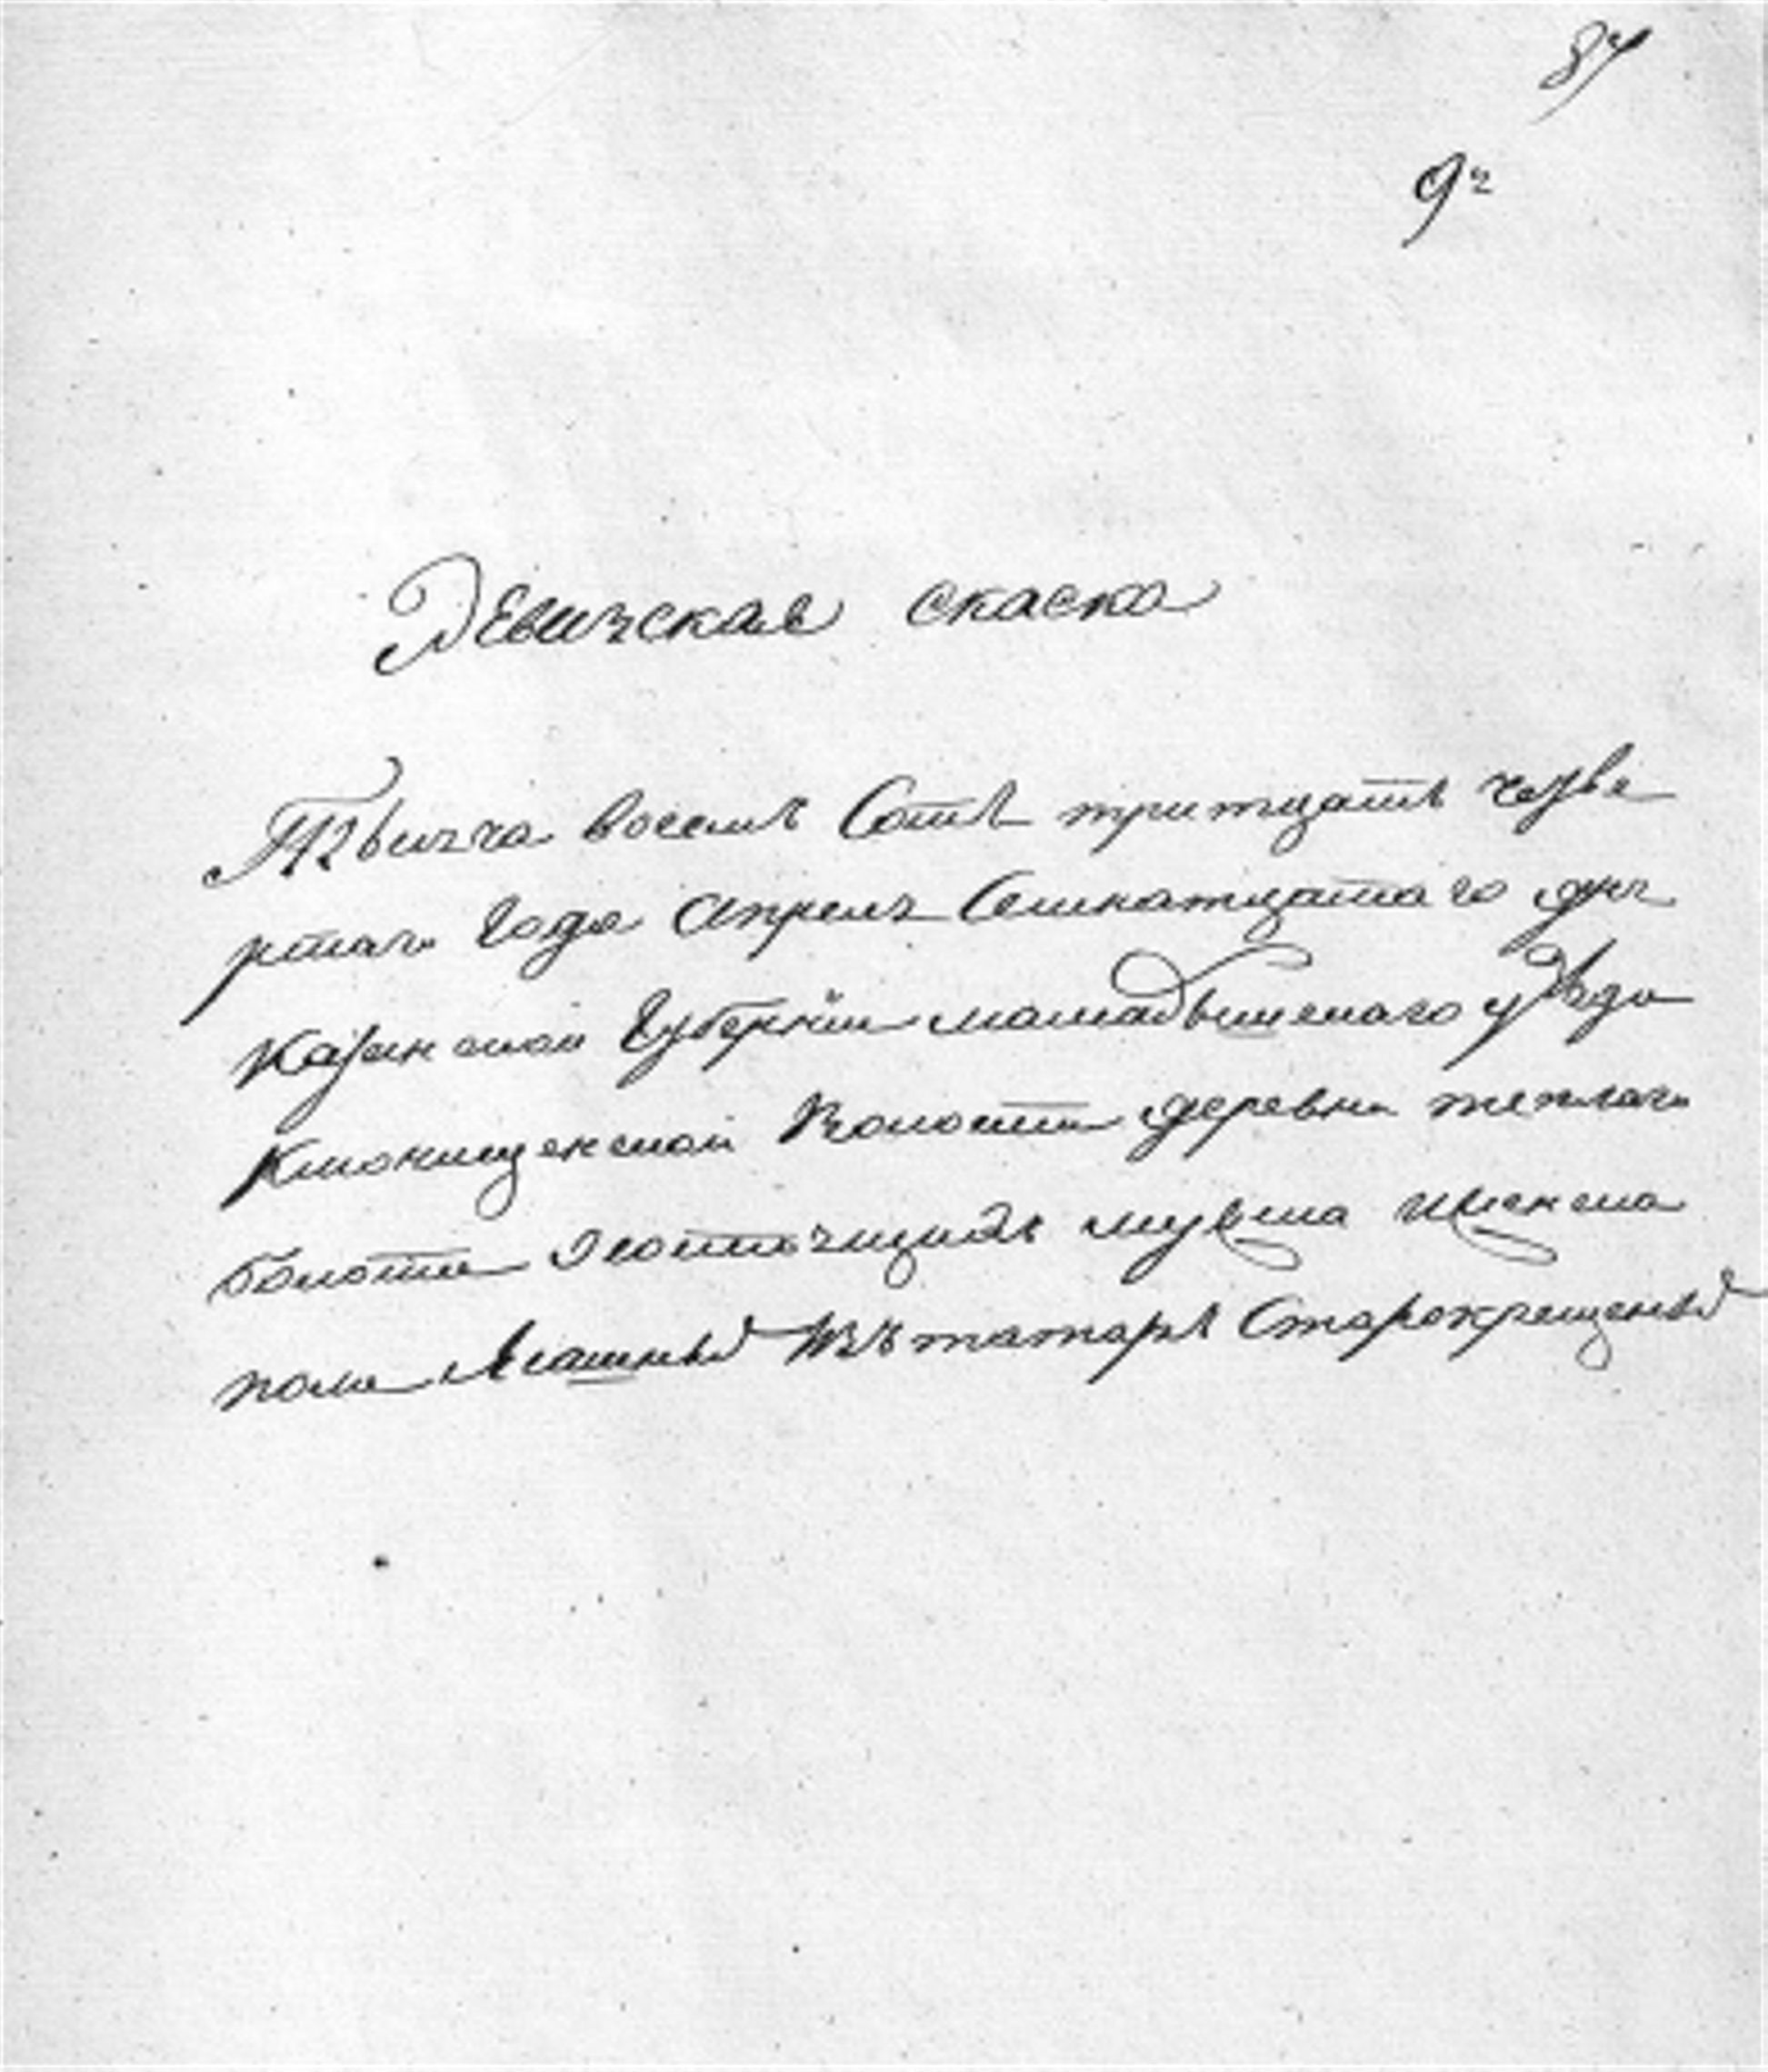 87
Ревизская скаска
Тысяча восемь Сотъ тритцать четве
ртаго Года Апреля Семнатцатаго дня
Казанской Губернїи мамадышскаго уѣзда
Ключищенской Волости деревни теплаго
болота О состоящихъ мужска и женска
пола Ясашныхъ Изъ татаръ Старокрещеныхъ